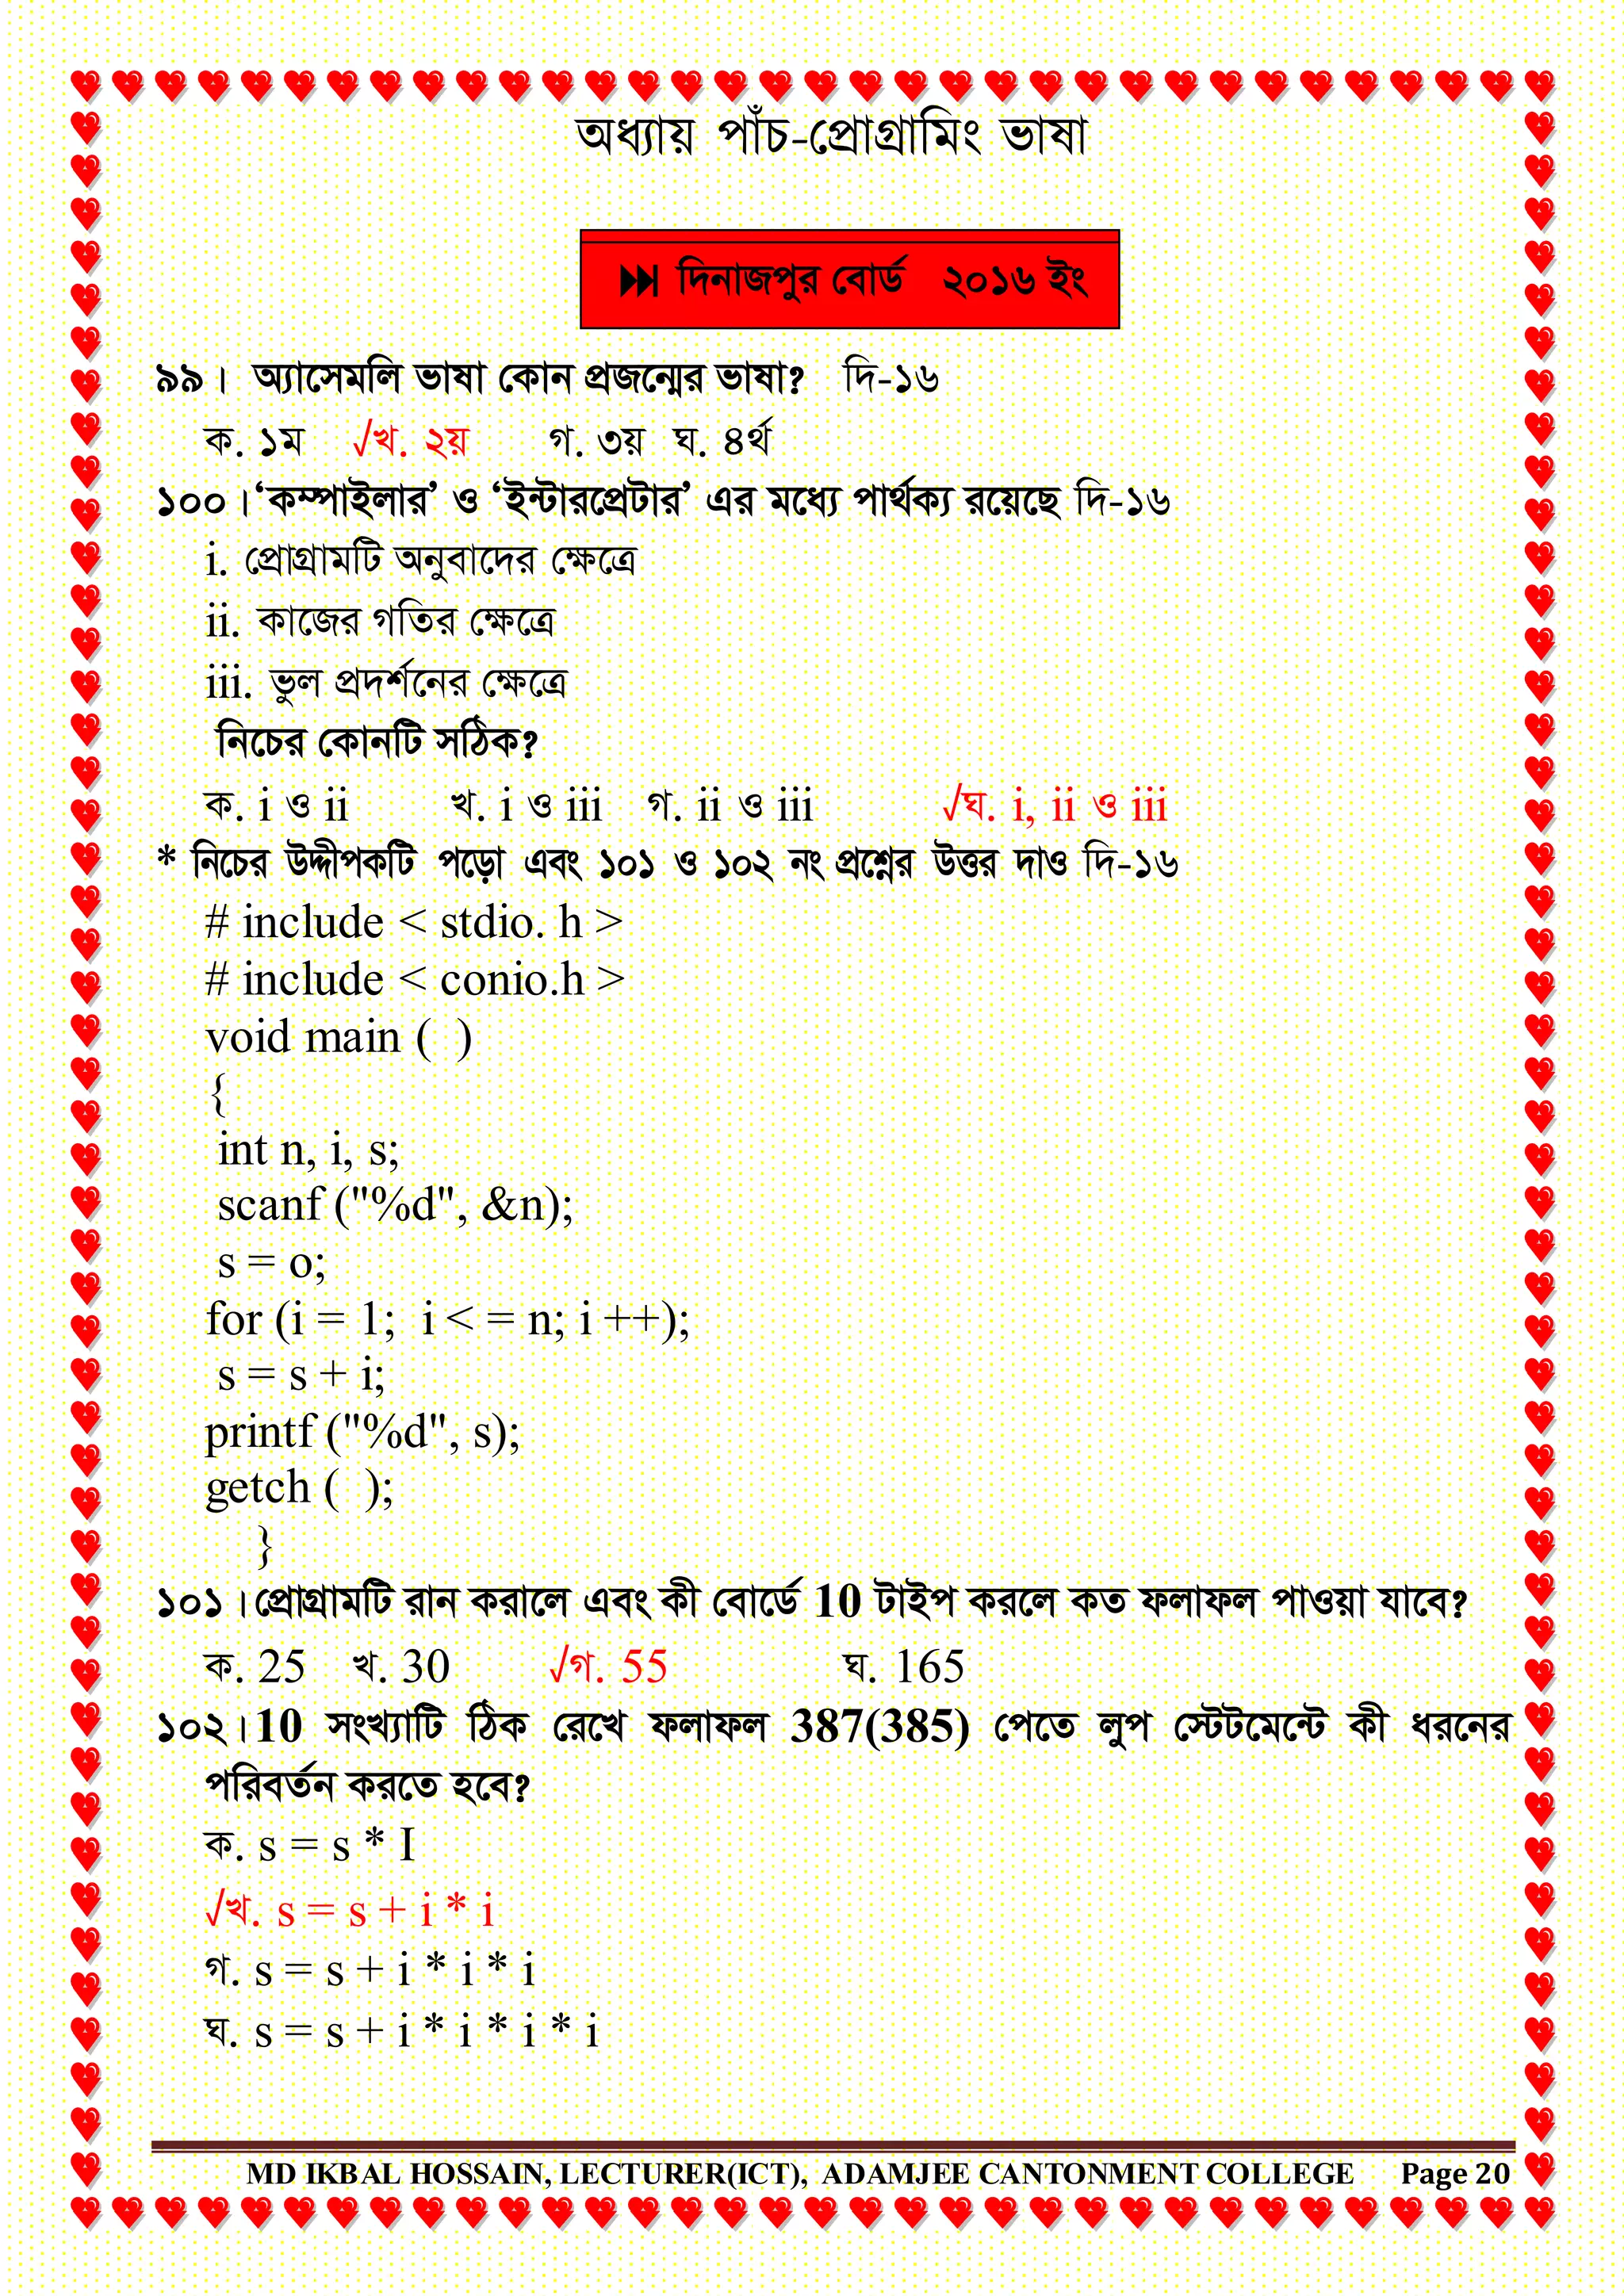 অধ্যায় পাঁচ-প্রোগ্রামিং ভাষা
দিনাজপুর বোর্ড ২০১৬ ইং
৯৯। অ্যাসেমলি ভাষা কোন প্রজন্মের ভাষা? দি-১৬
ক. ১ম √খ. ২য় গ. ৩য় ঘ. ৪র্থ
১০০।‘কম্পাইলার’ ও ‘ইন্টারপ্রেটার’ এর মধ্যে পার্থক্য রয়েছে দি-১৬
i. প্রোগ্রামটি অনুবাদের ক্ষেত্রে
ii. কাজের গতির ক্ষেত্রে
iii. ভুল প্রদর্শনের ক্ষেত্রে
নিচের কোনটি সঠিক?
ক. i ও ii খ. i ও iii গ. ii ও iii √ঘ. i, ii ও iii
* নিচের উদ্দীপকটি পড়ো এবং ১০১ ও ১০২ নং প্রশ্নের উত্তর দাও দি-১৬
# include < stdio. h >
# include < conio.h >
void main ( )
{
int n, i, s;
scanf ("%d", &n);
s = o;
for (i = 1; i < = n; i ++);
s = s + i;
printf ("%d", s);
getch ( );
}
১০১।প্রোগ্রামটি রান করালে এবং কী বোর্ডে 10 টাইপ করলে কত ফলাফল পাওয়া যাবে?
ক. 25 খ. 30 √গ. 55 ঘ. 165
১০২।10 সংখ্যাটি ঠিক রেখে ফলাফল 387(385) পেতে লুপ স্টেটমেন্টে কী ধরনের
পরিবর্তন করতে হবে?
ক. s = s * I
√খ. s = s + i * i
গ. s = s + i * i * i
ঘ. s = s + i * i * i * i
MD IKBAL HOSSAIN, LECTURER(ICT), ADAMJEE CANTONMENT COLLEGE Page 20